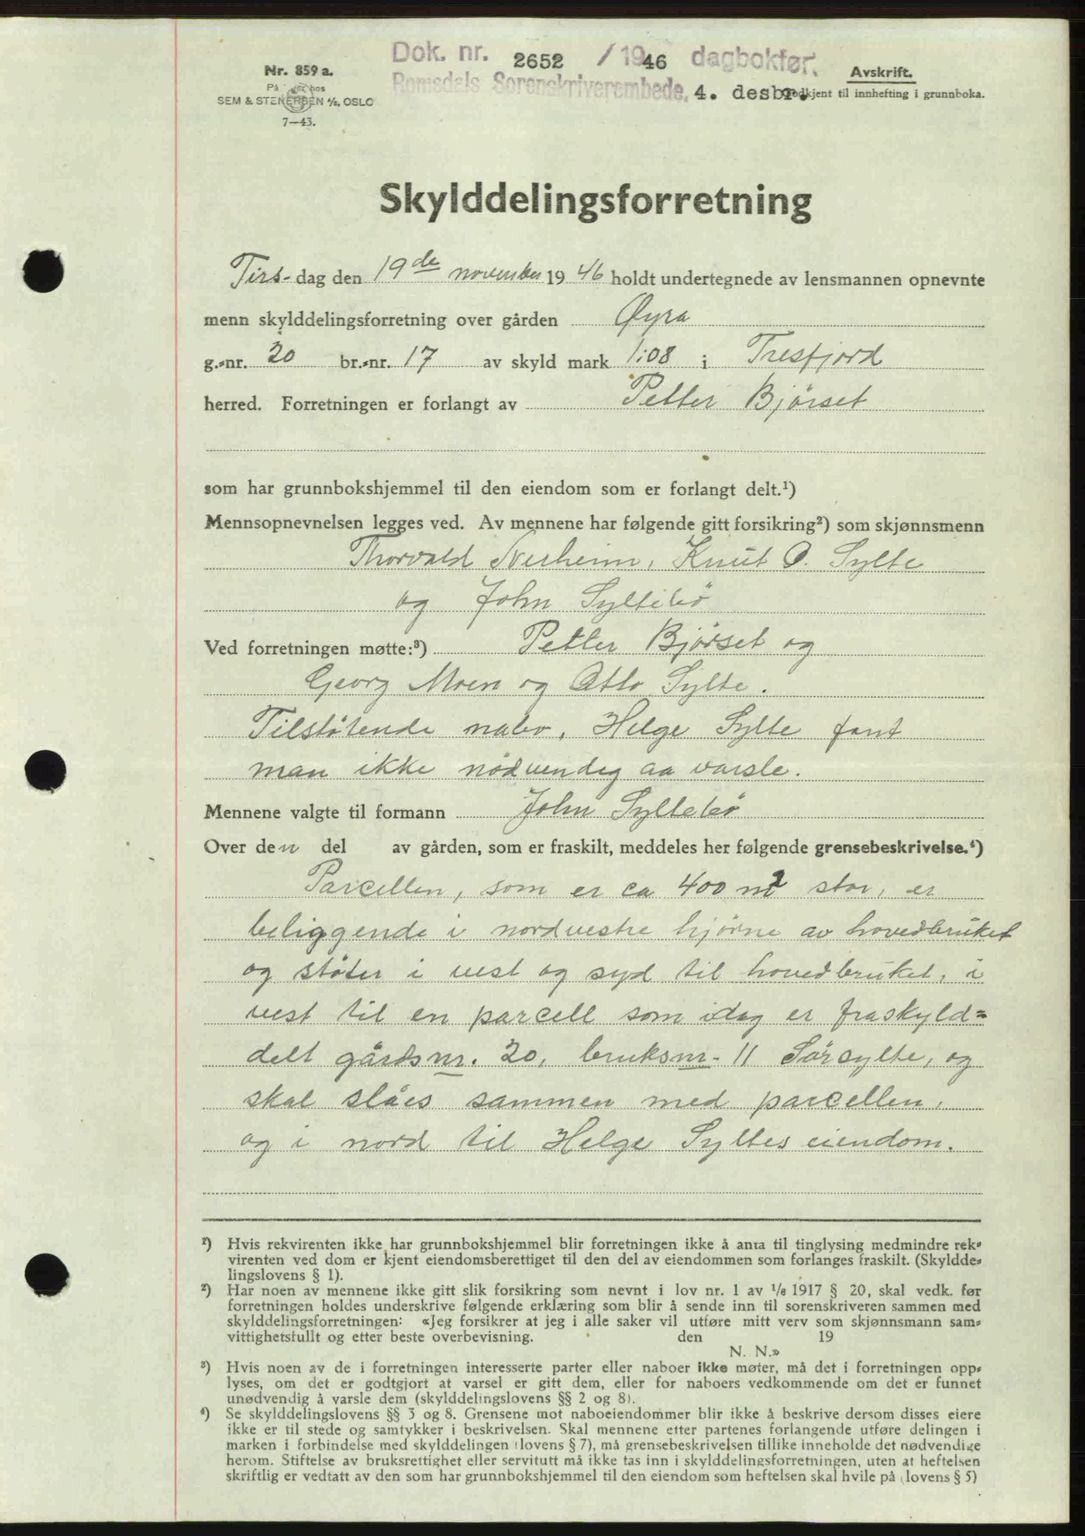 Dok. nr. 2652 / 1946 dagbokfør.
Romsdals Sorenskriverembede, 4. desbr.
Nr. 859 a.
SEM & STENERSEN A/S, OSLO
7—43.
Avskrift.
Godkjent til innhefting i grunnboka.
Skylddelingsforretning
Tirs-dag den 19de november 1946 holdt undertegnede av lensmannen opnevnte
menn skylddelingsforretning over gården Øyra
g.-nr. 20 br.-nr. 17 av skyld mark 1.08 i Tresfjord
herred. Forretningen er forlangt av Petter Bjørset
som har grunnbokshjemmel til den eiendom som er forlangt delt.¹)
Mennsopnevnelsen legges ved. Av mennene har følgende gitt forsikring²) som skjønnsmenn
Thorvald Nerheim, Knut O. Sylte
og John Syltebø
Ved forretningen møtte:³) Petter Bjørset og
Georg Moen og Otto Sylte.
Tilstøtende nabo, Helge Sylte fant
man ikke nödvendig aa varsle.
Mennene valgte til formann John Syltebø
Over den del av gården, som er fraskilt, meddeles her følgende grensebeskrivelse.⁴)
Parcellen, som er ca 400 m2 stor, er
beliggende i nordvestre hjörne av hovedbruket
og stöter i vest og syd til hovedbruket, i
vest til en parcell som idag er fraskyld=
delt gårdsnr. 20, bruksnr. 11 Sörsylte, og
skal slåes sammen med parcellen,
og i nord til Helge Syltes eiendom.
¹) Hvis rekvirenten ikke har grunnbokshjemmel blir forretningen ikke å anta til tinglysing medmindre rek-
virenten ved dom er kjent eiendomsberettiget til den del av eiendommen som forlanges fraskilt. (Skyldde-
lingslovens § 1).
²) Har noen av mennene ikke gitt slik forsikring som nevnt i lov nr. 1 av 1/6 1917 § 20, skal vedk. før
forretningen holdes underskrive følgende erklæring som blir å sende inn til sorenskriveren sammen med
skylddelingsforretningen: «Jeg forsikrer at jeg i alle saker vil utføre mitt verv som skjønnsmann sam-
vittighetsfullt og etter beste overbevisning. den 19
N. N.»
³) Hvis noen av de i forretningen interesserte parter eller naboer ikke møter, må det i forretningen opp-
lyses, om det er godtgjort at varsel er gitt dem, eller for naboers vedkommende om det er funnet
unødvendig å varsle dem (skylddelingslovens §§ 2 og 8).
⁴) Se skylddelingslovens §§ 3 og 8. Grensene mot naboeiendommer blir ikke å beskrive dersom disses eiere
ikke er til stede og samtykker i beskrivelsen. Skal mennene etter partenes forlangende utføre delingen i
marken i forbindelse med skylddelingen (lovens § 7), må grensebeskrivelsen tillike inneholde det nødvendige
herom. Stiftelse av bruksrettighet eller servitutt må ikke tas inn i skylddelingsforretningen, uten at heftelsen
skriftlig er vedtatt av den som har grunnbokshjemmel til den eiendom som heftelsen skal hvile på (lovens § 5)